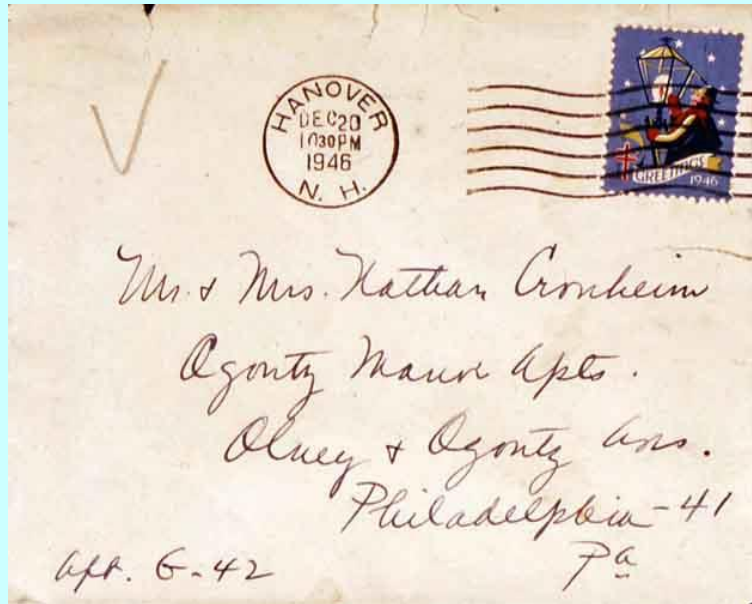 HANOVER
DEC 20
10 30 PM
1946
N. H.
GREETINGS
1946
Mr. & Mrs. Nathan Cronheim
Ogontz Manor Apts.
Olney & Ogontz Aves.
Philadelphia - 41
Pa
Apt. G-42